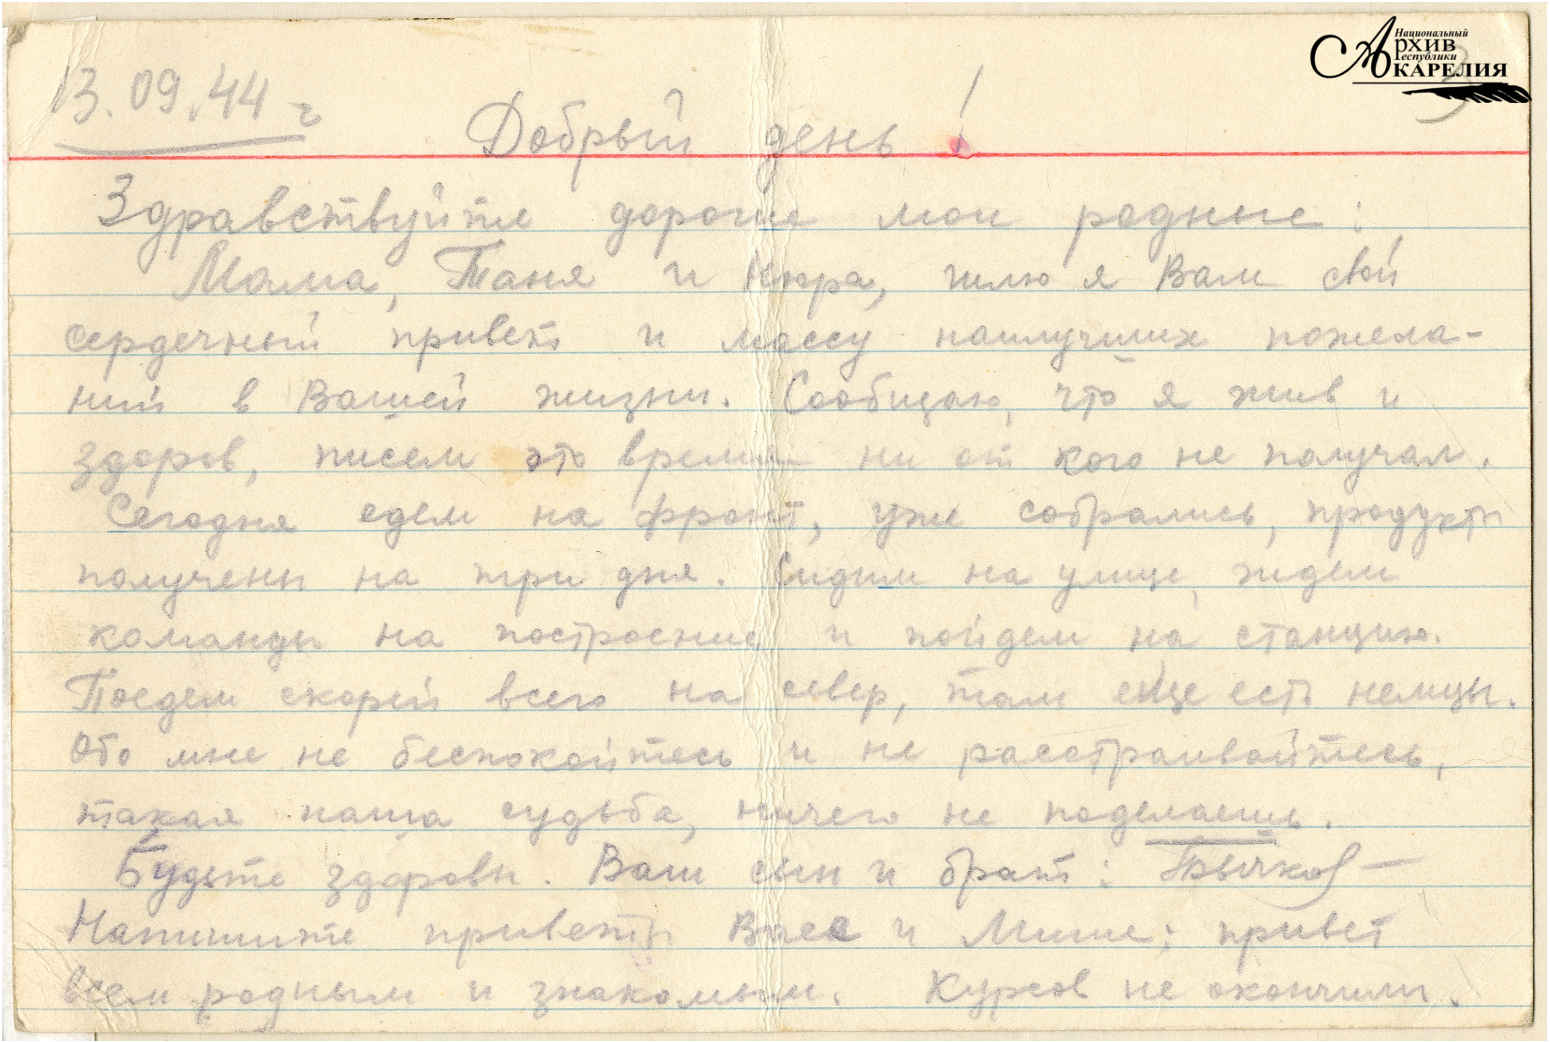 Национальный
Архив
Республики
Карелия
3
13.09.44 г
Добрый день!
Здравствуйте дорогие мои родные:
Мама, Таня и Нюра, шлю я Вам свой
сердечный привет и массу наилучших пожела-
ний в Вашей жизни. Сообщаю, что я жив и
здоров, писем это время ни от кого не получал.
Сегодня едем на фронт, уже собрались, продукты
получены на три дня. Сидим на улице, ждем
команды на построение и пойдем на станцию.
Поедем скорей всего на север, там еще есть немцы.
Обо мне не беспокойтесь и не расстраивайтесь,
такая наша судьба, ничего не поделаешь.
Будьте здоровы. Ваш сын и брат:
Напишите приветы и Мише; привет
всем родным и знакомым. Курсов не окончили.